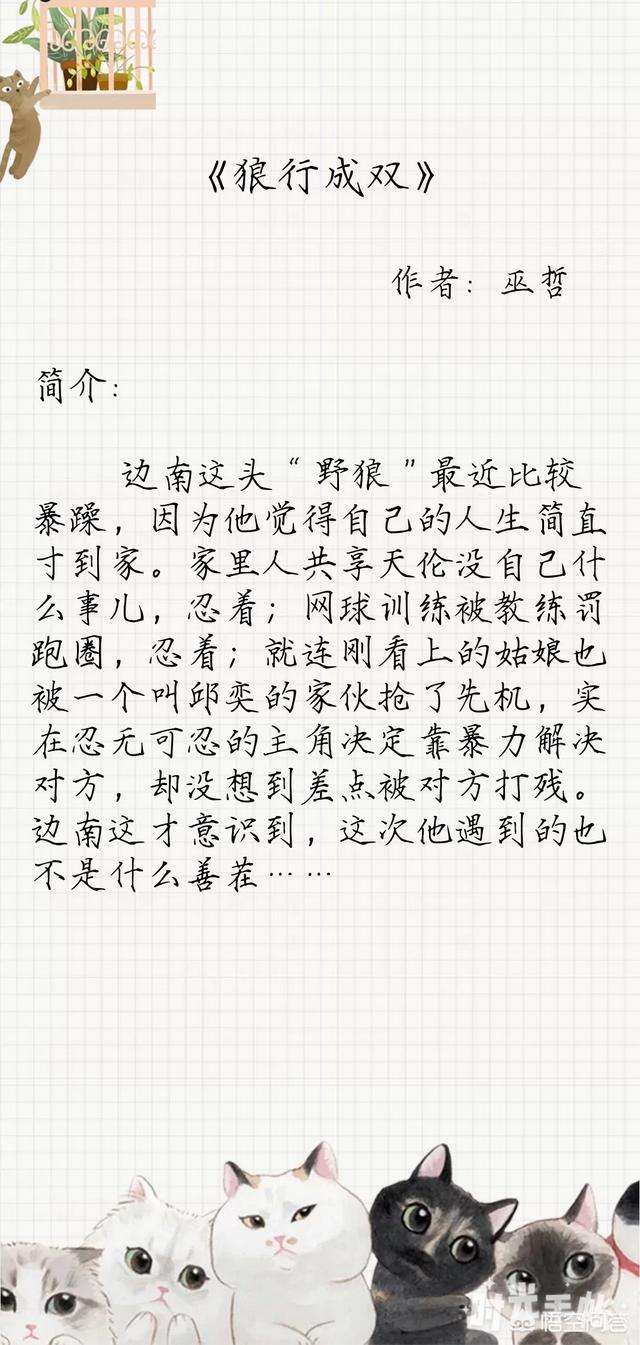 《狼行成双》
作者：巫哲
简介：
边南这头“野狼”最近比较
暴躁，因为他觉得自己的人生简直
寸到家。家里人共享天伦没自己什
么事儿，忍着；网球训练被教练罚
跑圈，忍着；就连刚看上的姑娘也
被一个叫邱奕的家伙抢了先机，实
在忍无可忍的主角决定靠暴力解决
对方，却没想到差点被对方打残。
边南这才意识到，这次他遇到的也
不是什么善茬……
时光手帐
悟空问答